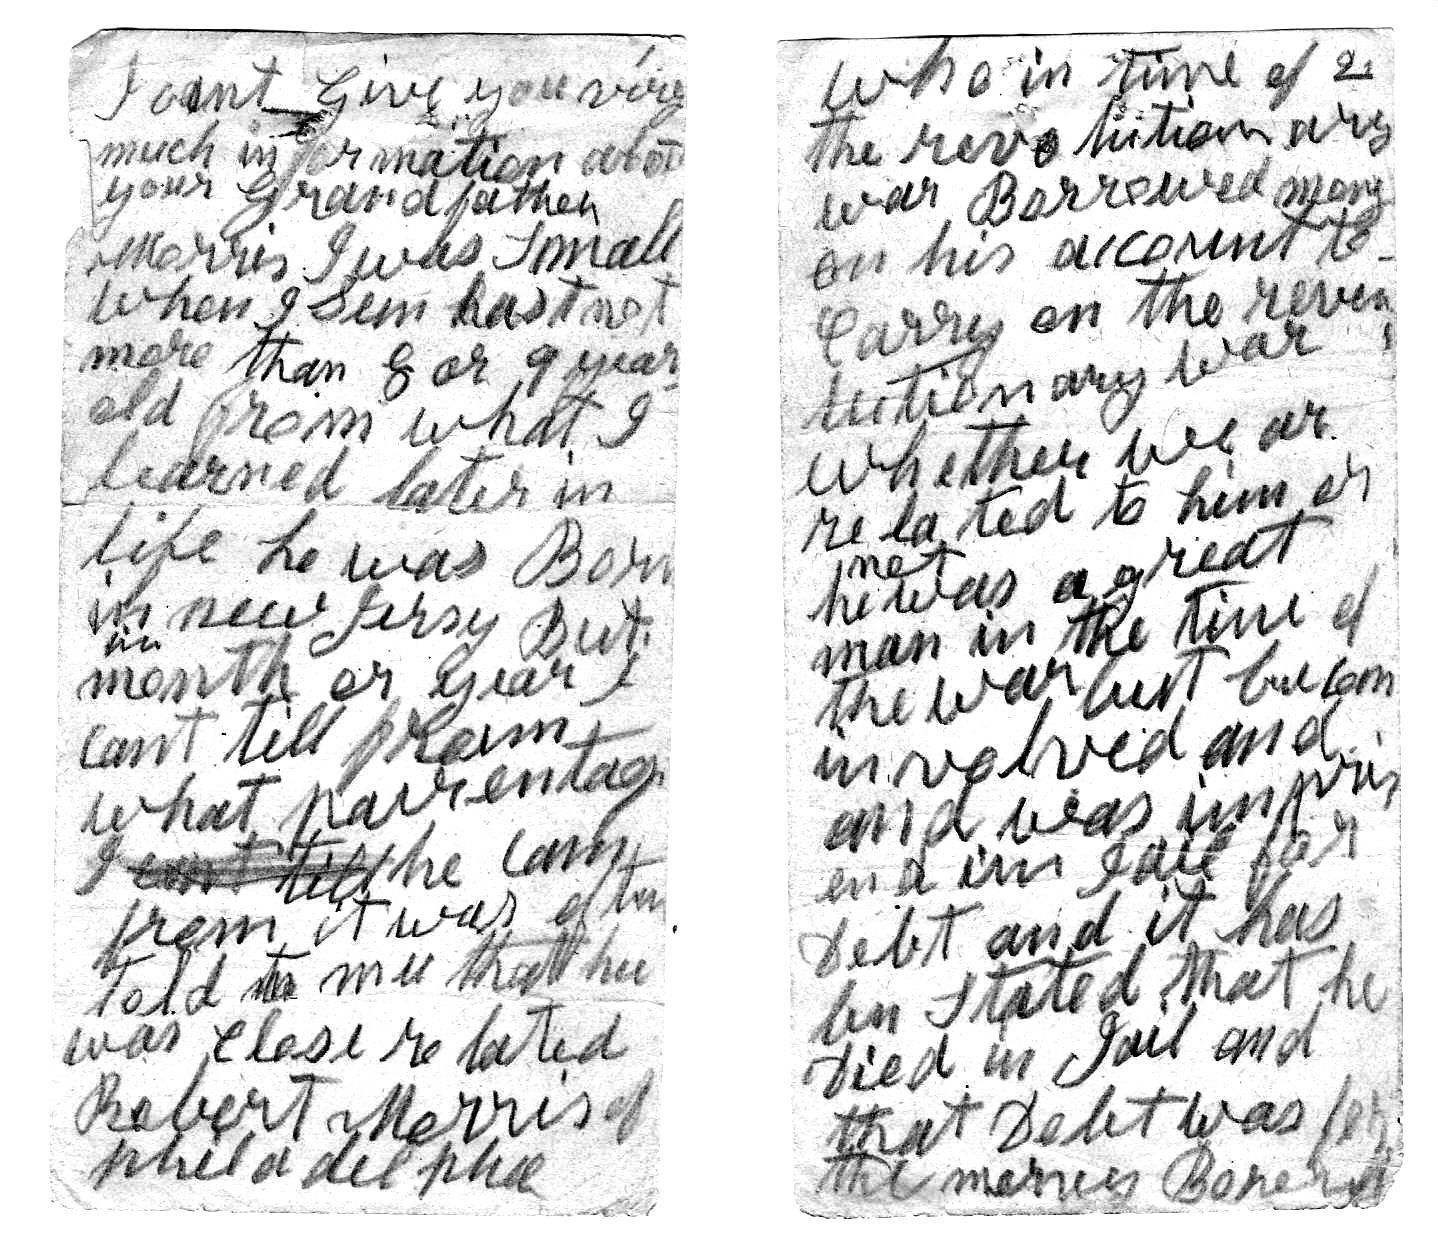 I cant Give you very
much information about
your Grandfather
Morris I was Small
when I Seen hast not
more than 8 or 9 year
old from what I
learned later in
life he was Born
in new Jersy But
in
month or year I
cant till from
what parrentage
I cant till he cam
from it was often
told to me that hee
was close related
Robert Morris of
philadelphe
who in time of 2.
the revolution ary
war Borrowed mony
on his account to
Carry on the revou
lutionary war
whether we ar
related to him or
not
he was a great
man in the time of
the war but becom
involved and
and was impris
end in Jail for
Debt and it has
ben Stated that he
Died in Jail and
that Debt was for
the monney